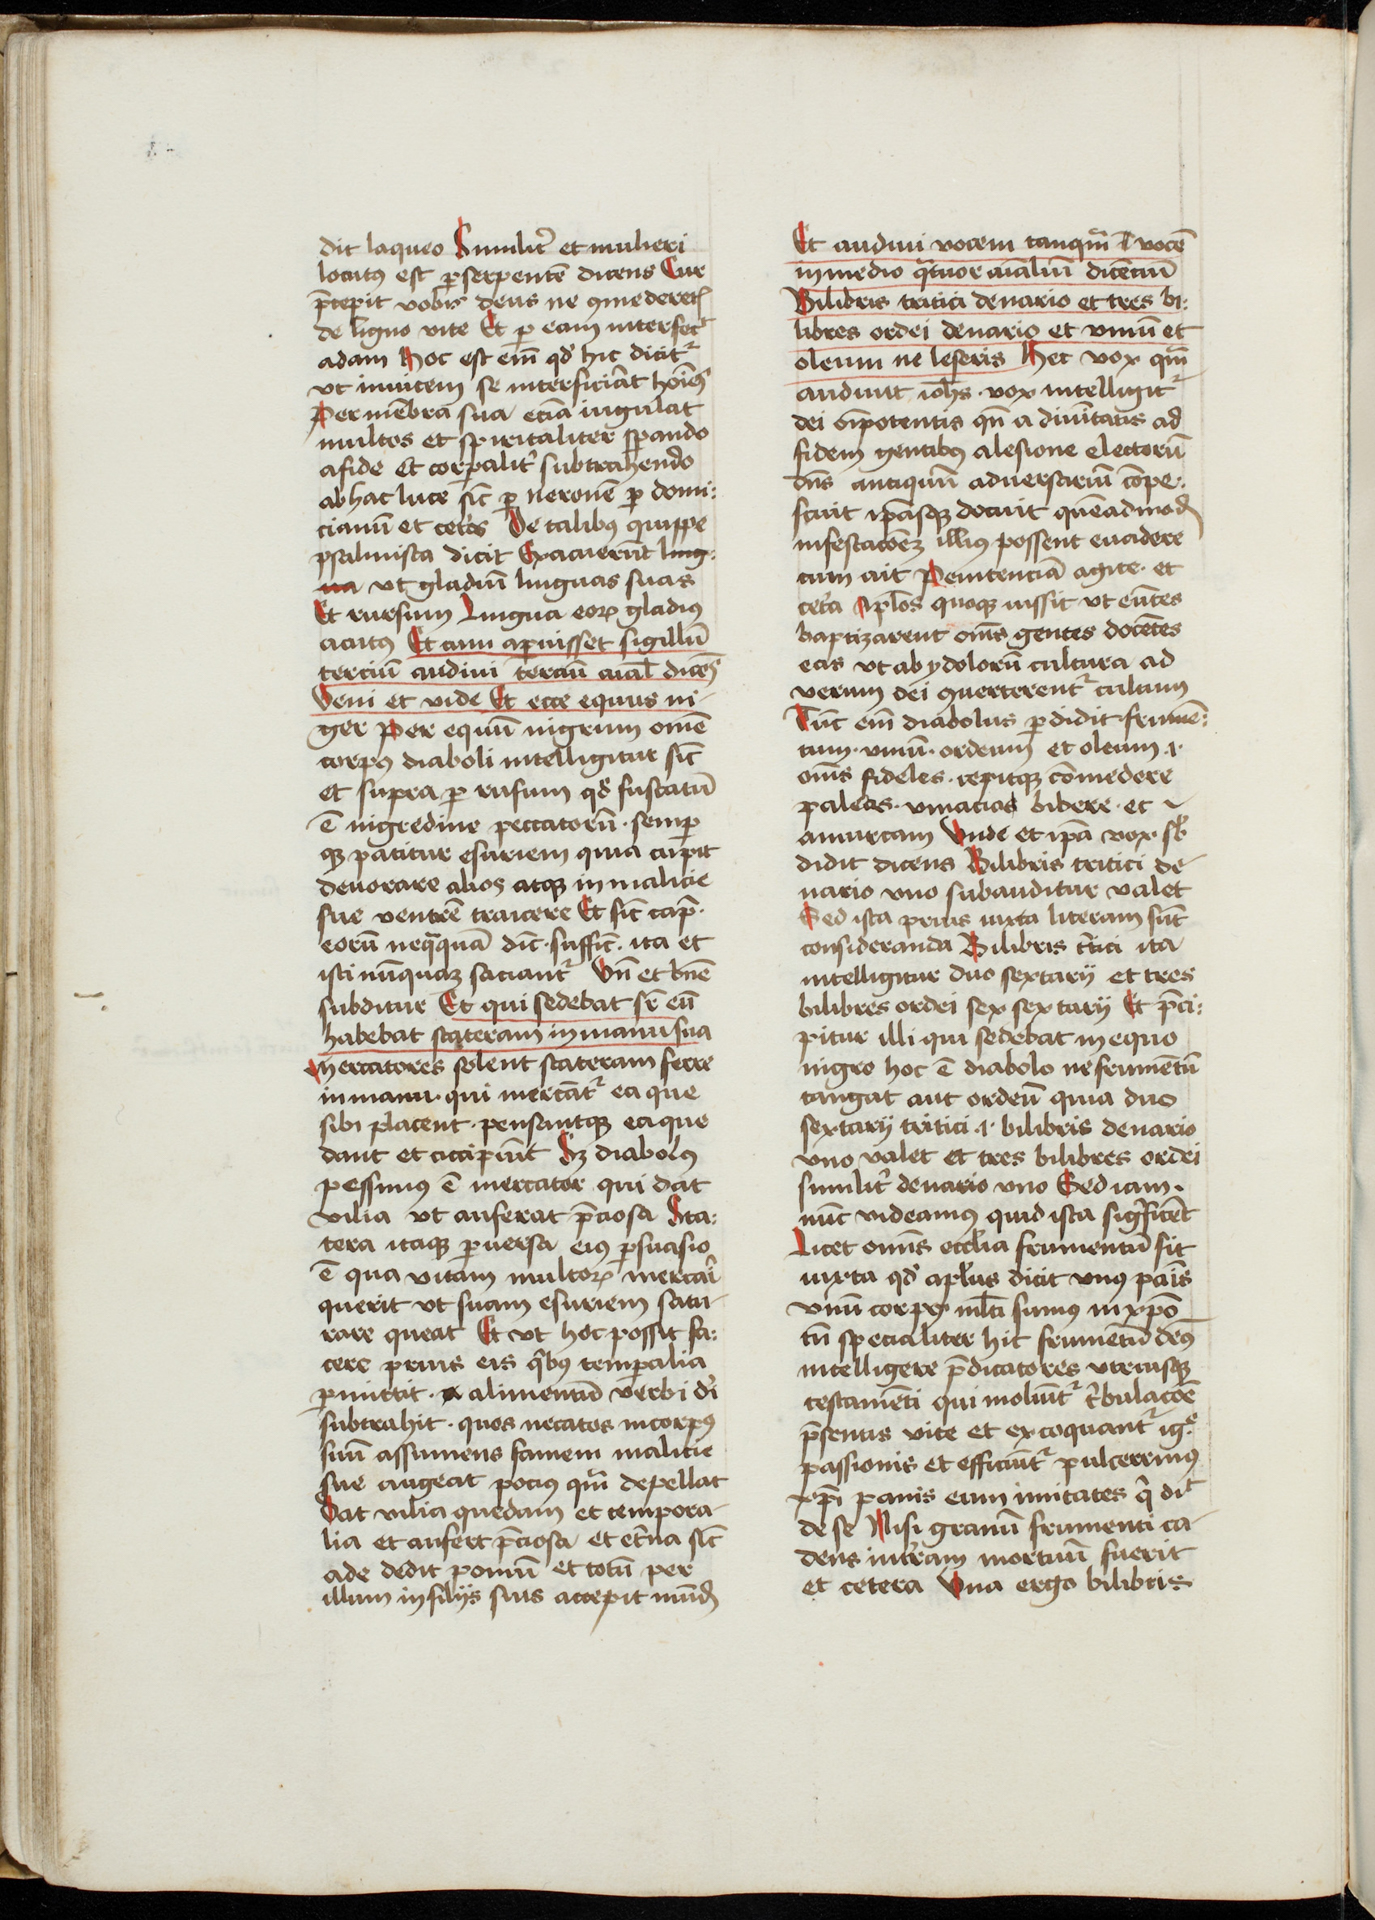 dit laqueo Similit̉ et mulieri
locutꝰ est ꝑ serpentē dicens Cur
p̄cepit vobis deus ne ꝯmederetꝭ
de ligno vite Et ꝑ eam interfecͭ
adam Hoc est em̄ qd̓ hic dicitᷣ
vt inuicem se interficiāt hoīes
Per mēbra sua eciā iugulat
multos et spiritaliter sꝑando
a fide et corꝑalit̉ subtrahendo
ab hac luce sic̄ ꝑ neronē ꝑ domi:
cianū et cet̉os De talibꝰ quippe
psalmista dicit Exacuerūt ling:
ua vt gladiū linguas suas
Et rursum Lingua eoꝝ gladiꝰ
acutꝰ Et cum aꝑuisset sigillū
terciū audiui terciū aīal dicēs
Veni et vide Et ecce equus ni-
ger Per equū nigrum om̄e
corpꝰ diaboli intelligitur sic̄
et supra ꝑ rufum qd̓ fuscatū
ē nigredine peccatorū · semꝑ
qꝫ patitur esuriem quia cupit
deuorare alios atqꝫ in malicie
sue ventrē traicere Et sic̄ cap̄ ·
eorū neqᷓquā dn̄t · suffic̄ · ita et
isti nūquaꝫ saciantᷣ Vn̄ et bn̄e
subditur Et qui sedebat sr̄ eū
habebat stateram in manu sua
Mercatores solent stateram ferre
in manu · qui mercātᷣ ea que
sibi placent · pensantqꝫ ea que
dant et accipiunt Sꝫ diabolꝰ
pessimꝰ ē mercator qui dat
vilia vt auferat p̄ciosa Sta:
tera itaqꝫ ꝑuersa eiꝰ ꝑsuasio
ē qua vitam multoꝝ mercari
querit vt suam esuriem satu-
rare queat Et vt hoc possit fa:
cere prius eis qͥbꝰ temꝑalia
ꝑmittit · alimentū verbi di̓
subtrahit · quos necatos in corpꝰ
suū assumens famem malicie
sue augeat pociꝰ qᷓm depellat
Dat vilia quedam et tempora-
lia et aufert p̄ciosa et et̉na sic̄
ade dedit pomū et totū per
illum in filijs suis accepit mūdꝭ
Et audiui vocem tanqᷓm vocē
in medio qᷓtuor aīaliū dicēciū
Bilibris tritici denario et tres bi:
libres ordei denario et vinū et
oleum ne leseris Hec vox qᷓm
audiuit ioh̄s · vox intelligitᷣ
dei oīpotentis qn̄ a diuītatis ad
fidem gentibꝰ a lesione electorū
dn̄s antiquū aduersariū cōpe:
scuit ipāsqꝫ docuit quēadmodꝭ
infestacōeꝫ illiꝰ possent euadere
cum ait Penitenciā agite · et
cet̉a Apl̄os quoqꝫ iussit vt eūtes
baptizarent om̄s gentes docētes
eas vt ab ydolorū cultura ad
verum dei ꝯuerterentᷣ cultum
Tūc em̄ diabolus ꝑdidit · frumē:
tum · vinū · ordeum et oleum ·i·
om̄s fideles · cepitqꝫ cōmedere
paleas · vinacia bibere · et
amurcam Vnde et ipā vox · sb̓
didit dicens Bilibris tritici de-
nario vno subauditur valet
Sed ista prius iuxta literam sūt
consideranda Bilibris t̉tici ita
intelligitur duo sextarij et tres
bilibres ordei sex sextarij Et p̄ci:
pitur illi qui sedebat in equo
nigro hoc ē diabolo ne frumētū
tangat aut ordeū quia duo
sextarij tritici ·i· bilibris denario
vno valet et tres bilibres ordei
similit̉ denario vno Sed iam ·
nūc videamꝰ quid ista sig̓ficēt
Licet omīs eccl̄ia frumentū sit
iuxta qd̓ apl̄us dicit vnꝰ paīs
vnū corpꝰ ml̄ti sumꝰ in xp̄o
tn̄ specialiter hic frumētū deꝰ
intelligere p̄dicatores vtriusqꝫ
testamēti qui moluūtᷣ t̉bulacōe
p̄sentis vite et excoquantᷣ igͤ
passionis et efficiūtᷣ pulcerrimꝰ
xp̄i panis eum imitātes qͥ dic̄
de se Nisi granū frumenti ca-
dens in t̉ram mortuū fuerit
et cetera Vna ergo bilibris